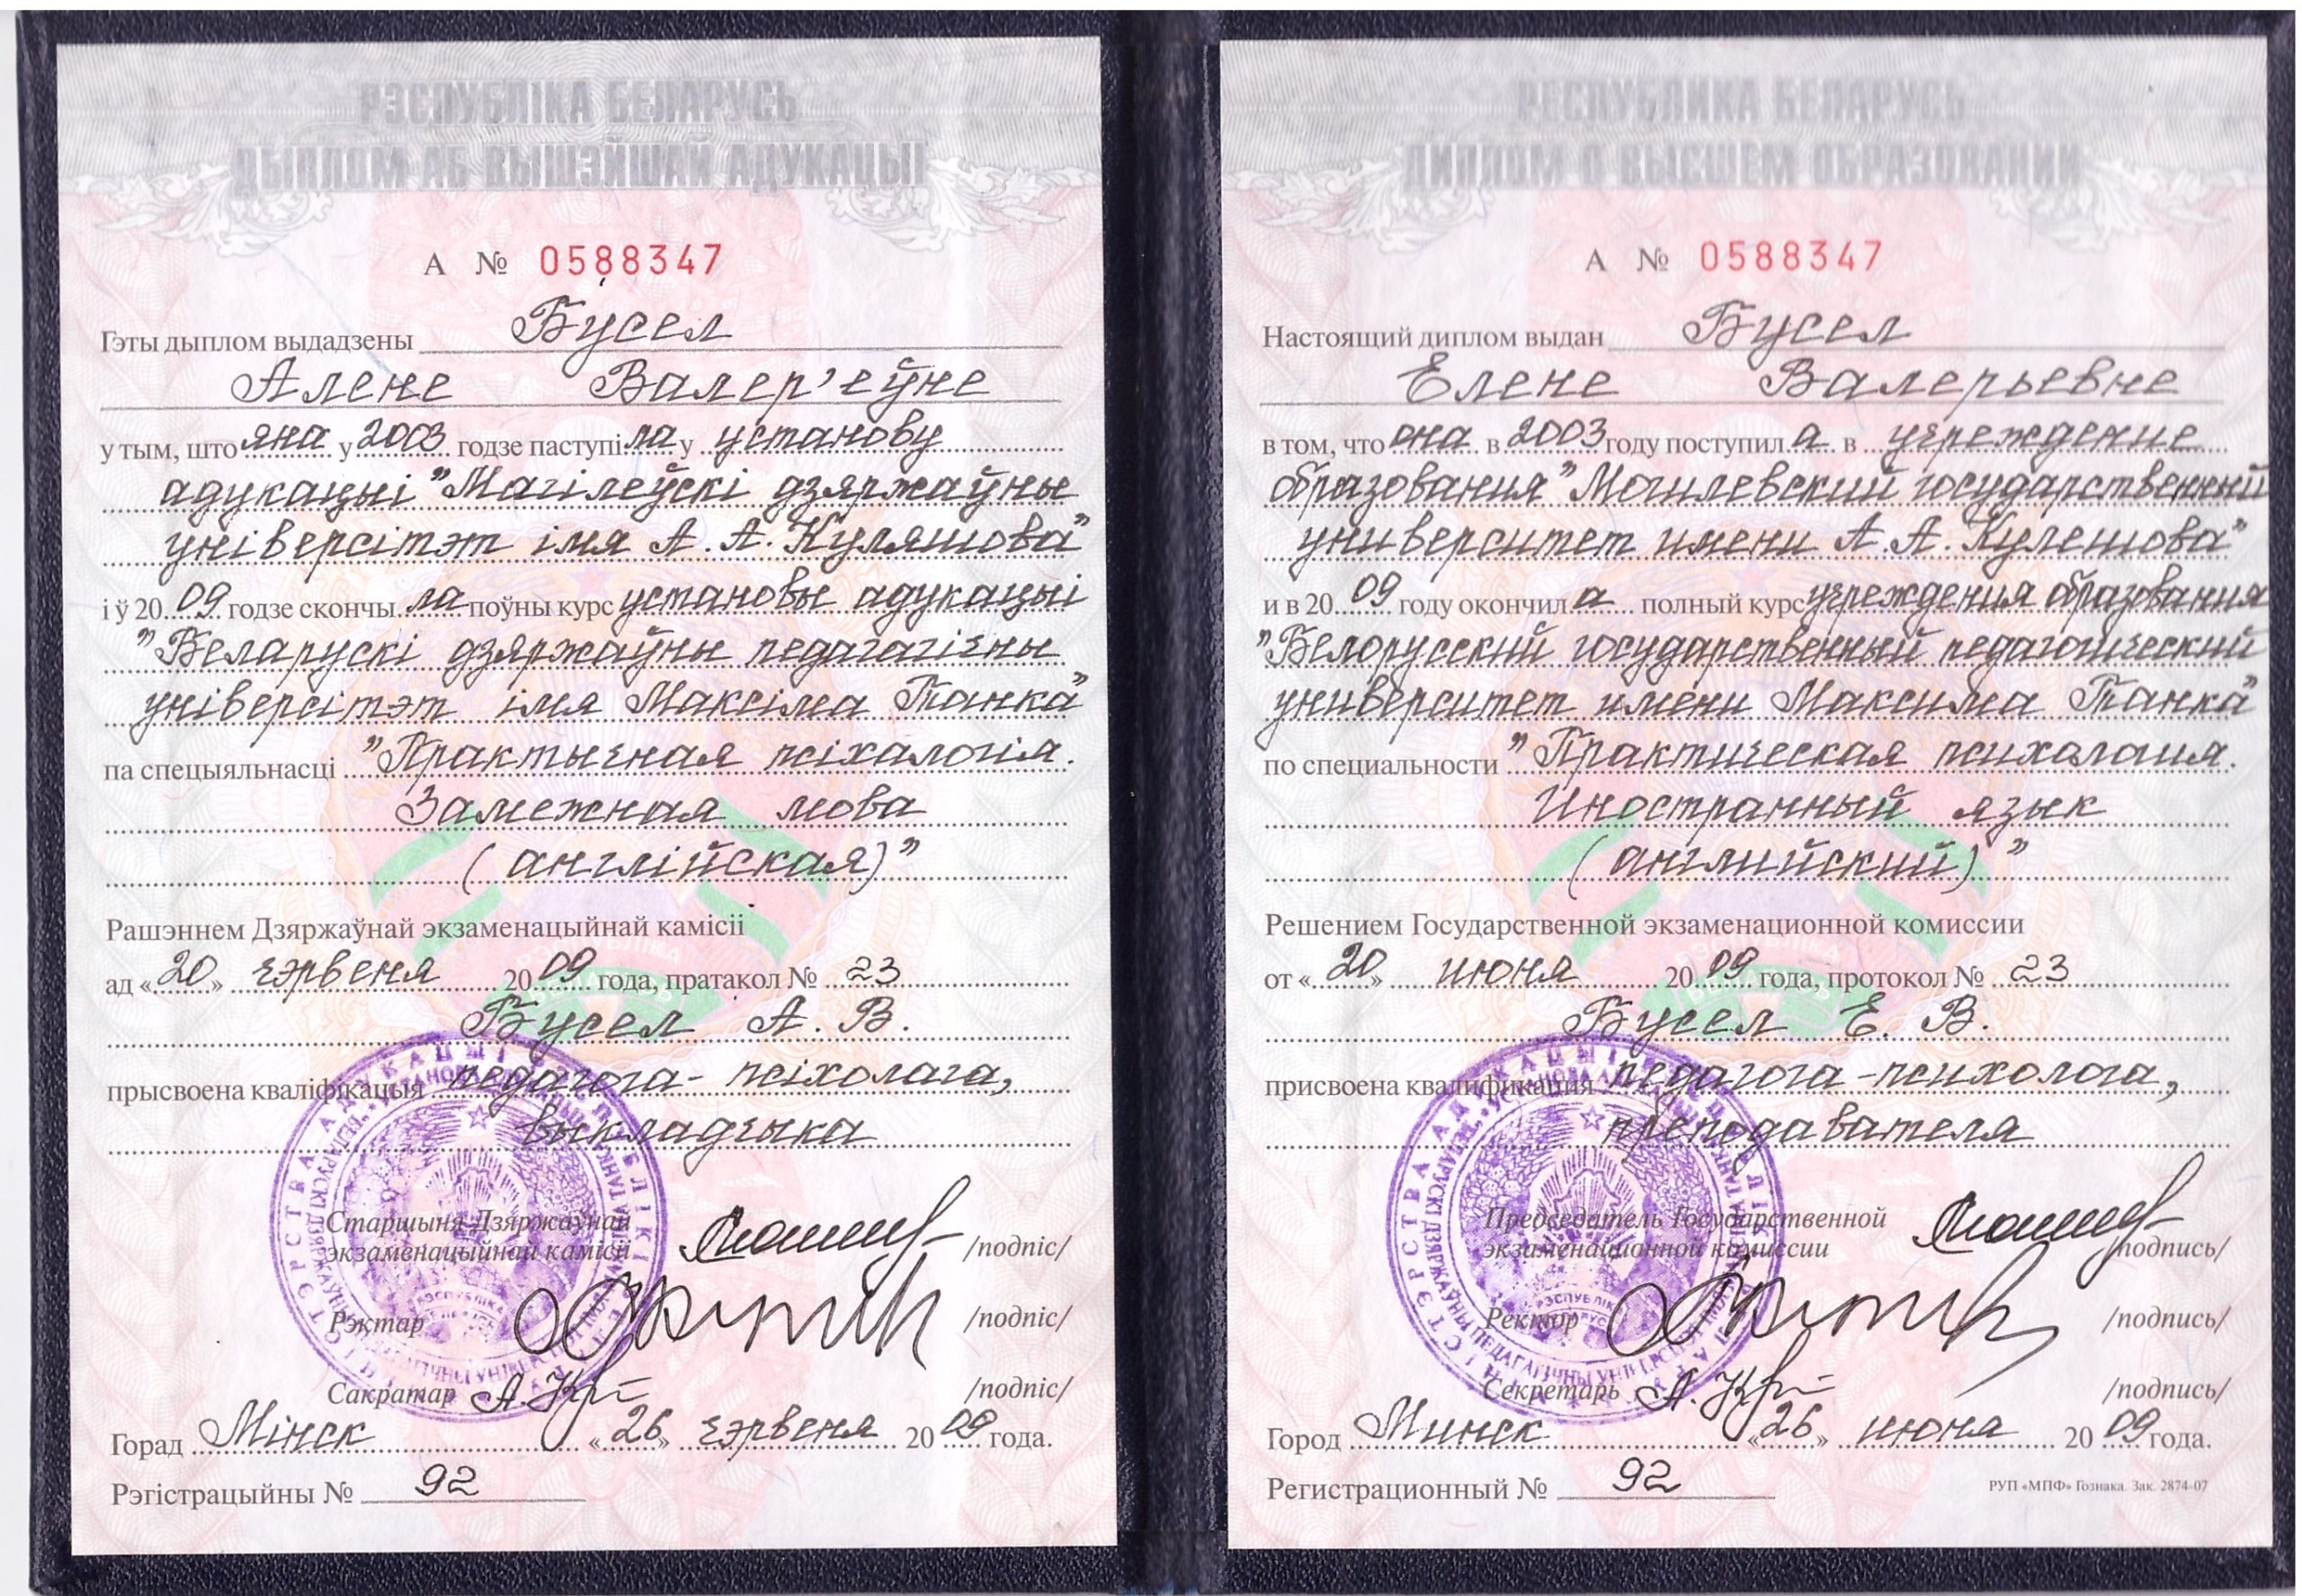 РЭСПУБЛІКА БЕЛАРУСЬ
ДЫПЛОМ АБ ВЫШЭЙШАЙ АДУКАЦЫІ
А № 0588347
Гэты дыплом выдадзены Бусел
Алене Валер'еўне
у тым, што яна у 2003 годзе паступіла у установу
адукацыі "Магілеўскі дзяржаўны
універсітэт імя А.А. Куляшова"
і ў 2009 годзе скончыла поўны курс установы адукацыі
"Беларускі дзяржаўны педагагічны
універсітэт імя Максіма Танка"
па спецыяльнасці "Практычная псіхалогія.
Замежная мова
(англійская)"
Рашэннем Дзяржаўнай экзаменацыйнай камісіі
ад «20» чэрвеня 2009 года, пратакол № 23
Бусел А. В.
прысвоена кваліфікацыя педагога-псіхолага,
выкладчыка
Старшыня Дзяржаўнай
экзаменацыйнай камісіі /подпіс/
Рэктар /подпіс/
Сакратар /подпіс/
Горад Мінск «26» чэрвеня 2009 года.
Рэгістрацыйны № 92
РЕСПУБЛИКА БЕЛАРУСЬ
ДИПЛОМ О ВЫСШЕМ ОБРАЗОВАНИИ
А № 0588347
Настоящий диплом выдан Бусел
Елене Валерьевне
в том, что она в 2003 году поступила в учреждение
образования "Могилевский государственный
университет имени А.А. Кулешова"
и в 2009 году окончила полный курс учреждения образования
"Белорусский государственный педагогический
университет имени Максима Танка"
по специальности "Практическая психология.
Иностранный язык
(английский)"
Решением Государственной экзаменационной комиссии
от «20» июня 2009 года, протокол № 23
Бусел Е. В.
присвоена квалификация педагога-психолога,
преподавателя
Председатель Государственной
экзаменационной комиссии /подпись/
Ректор /подпись/
Секретарь /подпись/
Город Минск «26» июня 2009 года.
Регистрационный № 92
РУП «МПФ» Гознака. Зак. 2874-07